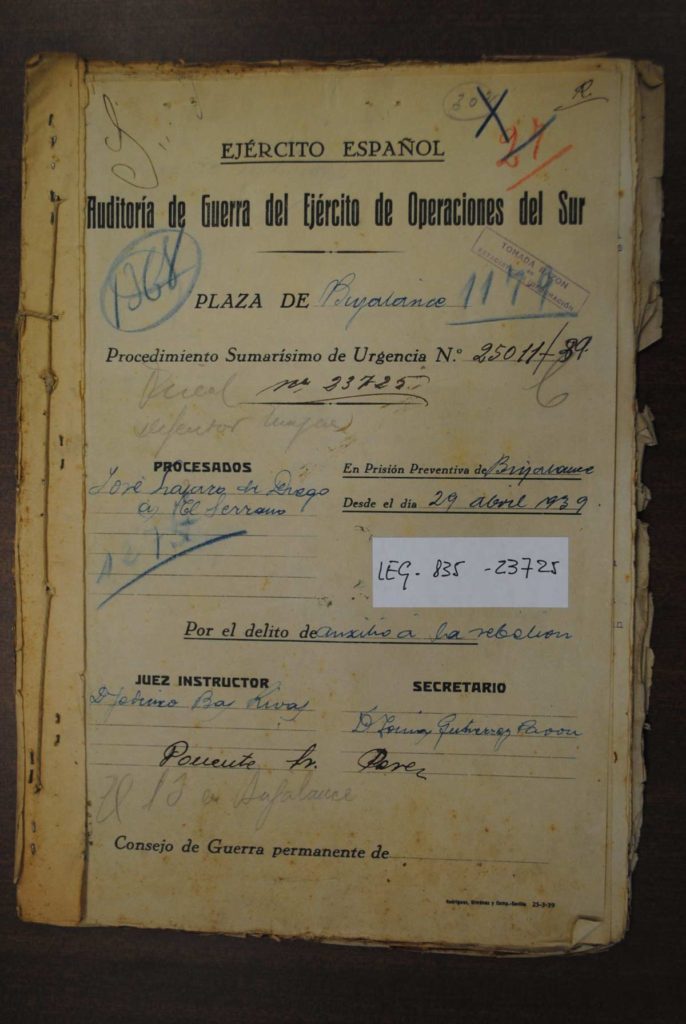 R.
27
EJÉRCITO ESPAÑOL
Auditoría de Guerra del Ejército de Operaciones del Sur
TOMADA RAZON
1368
1177
PLAZA DE Bujalance
Procedimiento Sumarísimo de Urgencia N.º 25011-39
nº 23725
defensor
PROCESADOS
José Lajara de Diego
a) El Serrano
En Prisión Preventiva de Bujalance
Desde el día 29 abril 1939
LEG. 835 - 23725
Por el delito de auxilio a la rebelion
JUEZ INSTRUCTOR
Bas Rivas
SECRETARIO
D Tomas Gutierrez Pavon
Ponente Sr. Perez
13 a Bujalance
Consejo de Guerra permanente de
Rodríguez, Giménez y Comp.-Sevilla 25-3-39